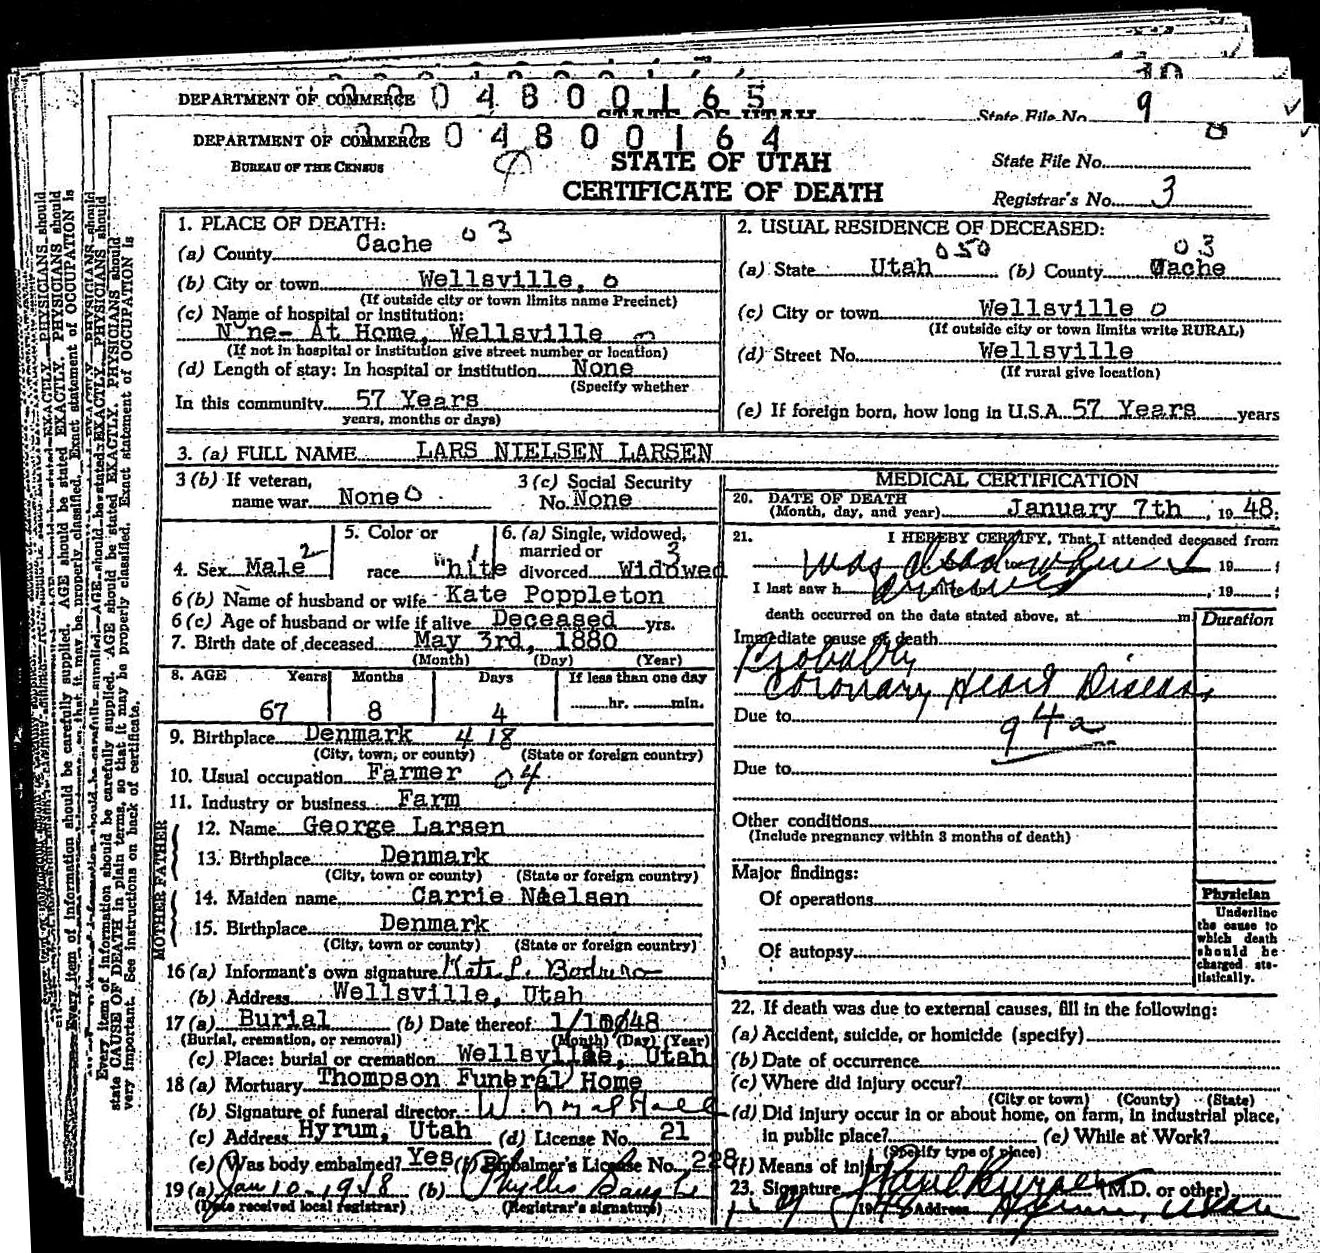 DEPARTMENT OF COMMERCE 0 4 8 0 0 1 6 5
STATE OF UTAH
State File No. 9
DEPARTMENT OF COMMERCE 0 4 8 0 0 1 6 4
BUREAU OF THE CENSUS
STATE OF UTAH
CERTIFICATE OF DEATH
State File No.
Registrar's No. 3
1. PLACE OF DEATH:
(a) County Cache 03
(b) City or town Wellsville, 0
(If outside city or town limits name Precinct)
(c) Name of hospital or institution:
None- At Home, Wellsville
(If not in hospital or institution give street number or location)
(d) Length of stay: In hospital or institution None
(Specify whether
In this community 57 Years
years, months or days)
2. USUAL RESIDENCE OF DECEASED:
050 03
(a) State Utah (b) County Cache
(c) City or town Wellsville 0
(If outside city or town limits write RURAL)
(d) Street No. Wellsville
(If rural give location)
(e) If foreign born, how long in U.S.A. 57 Years years
3. (a) FULL NAME LARS NIELSEN LARSEN
3 (b) If veteran,
name war None 0
3 (c) Social Security
No. None
4. Sex Male 2
5. Color or
race White
6. (a) Single, widowed,
married or 3
divorced Widowed
6 (b) Name of husband or wife Kate Poppleton
6 (c) Age of husband or wife if alive Deceased yrs.
7. Birth date of deceased May 3rd, 1880
(Month) (Day) (Year)
8. AGE Years Months Days If less than one day
67 8 4 hr. min.
9. Birthplace Denmark 418
(City, town, or county) (State or foreign country)
10. Usual occupation Farmer 04
11. Industry or business Farm
FATHER
12. Name George Larsen
13. Birthplace Denmark
(City, town or county) (State or foreign country)
MOTHER
14. Maiden name Carrie Nielsen
15. Birthplace Denmark
(City, town or county) (State or foreign country)
16 (a) Informant's own signature Kate P.
(b) Address Wellsville, Utah
17 (a) Burial (b) Date thereof 1/10/48
(Burial, cremation, or removal) (Month) (Day) (Year)
(c) Place: burial or cremation Wellsville, Utah
18 (a) Mortuary Thompson Funeral Home
(b) Signature of funeral director
(c) Address Hyrum, Utah (d) License No. 21
(e) Was body embalmed? Yes (f) Embalmer's License No. 228
19 (a) Jan 10-1948 (b) Phyllis
(Date received local registrar) (Registrar's signature)
MEDICAL CERTIFICATION
20. DATE OF DEATH
(Month, day, and year) January 7th, 1948:
21. I HEREBY CERTIFY, That I attended deceased from
was dead when I 19 :
I last saw h arrived , 19 :
death occurred on the date stated above, at m
Duration
Immediate cause of death
Probably
Coronary Heart Disease
Due to 94a
Due to
Other conditions
(Include pregnancy within 3 months of death)
Major findings:
Of operations
Of autopsy
Physician
Underline
the cause to
which death
should be
charged sta-
tistically.
22. If death was due to external causes, fill in the following:
(a) Accident, suicide, or homicide (specify)
(b) Date of occurrence
(c) Where did injury occur?
(City or town) (County) (State)
(d) Did injury occur in or about home, on farm, in industrial place,
in public place? (e) While at Work?
(Specify type of place)
(f) Means of injury
23. Signature (M.D. or other)
1-9 1948 Address Hyrum, Utah
Every item of information should be carefully supplied. AGE should be stated EXACTLY. PHYSICIANS should
state CAUSE OF DEATH in plain terms, so that it may be properly classified. Exact statement of OCCUPATION is
very important. See instructions on back of certificate.